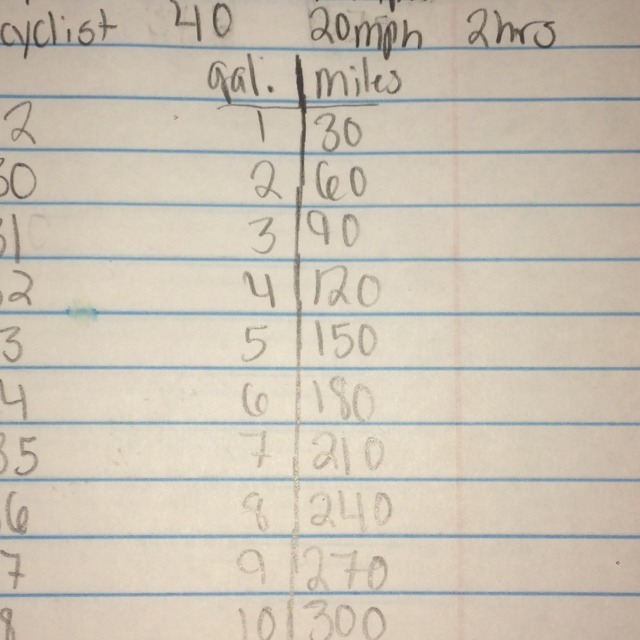 cyclist 40 20mph 2hrs
gal. miles
2 1 30
30 2 60
31 3 90
2 4 120
3 5 150
4 6 180
35 7 210
6 8 240
7 9 270
8 10 300